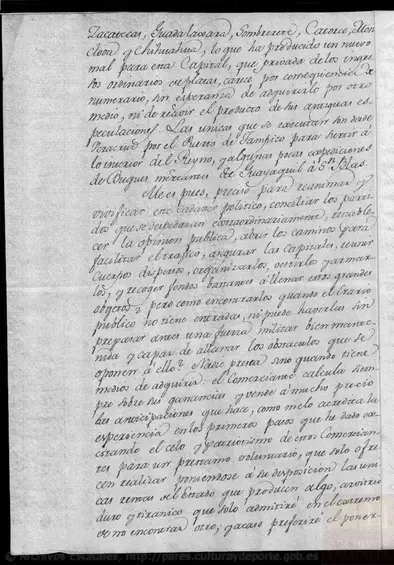 Zacatecas, Guadalaxara, Sombrerete, Catorce, Mon-
clova y Chihuahua, lo que ha producido un nuevo
mal para esta Capital, que privada de los ingre-
sos ordinarios de platas, carece por consequencia de
numerario, sin esperanza de adquirirlo por otro
medio, ni de recivir el producto de sus antiguas es-
peculaciones. Las unicas que se executan son desde
Veracruz por el Puerto de Tampico para herir à
lo interior del Reyno, y algunas pocas expediciones
de Buques mercantes de Guayaquil à Sn. Blas.
Me es pues, preciso para reanimar y
vivificar este Cadaver politico, conciliar los parti-
dos que se despedazan extraordinariamente, restable-
cer la opinion publica, abrir los caminos para
facilitar el trafico, asegurar las Capitales, reunir
cuerpos dispersos, organizarlos, vestirlos y armar-
los, y recoger fondos bastantes à llenar estos grandes
obgetos; pero como encontrarlos quando el Erario
publico no tiene entradas, ni puede haverlas sin
preparar antes una fuerza militar bien mante-
nida y capaz de allanar los obstaculos que se
oponen à ello? Nadie presta sino quando tiene
medios de adquirir: el Comerciante calcula siem-
pre sobre sus ganancias y vende à mucho precio
las anticipaciones que hace, como melo acredita la
esperiencia en los primeros pasos que he dado ex-
citando el celo y patriotismo de estos Comercian-
tes para un prestamo voluntario, que solo ofre-
cen realizar poniendose à su disposicion las uni-
cas rentas del Estado que producen algo; arvitrio
duro y tiranico que solo admitiré en el extremo
de no encontrar otro, y acaso preferiré el poner-
http://pares.culturaydeporte.gob.es